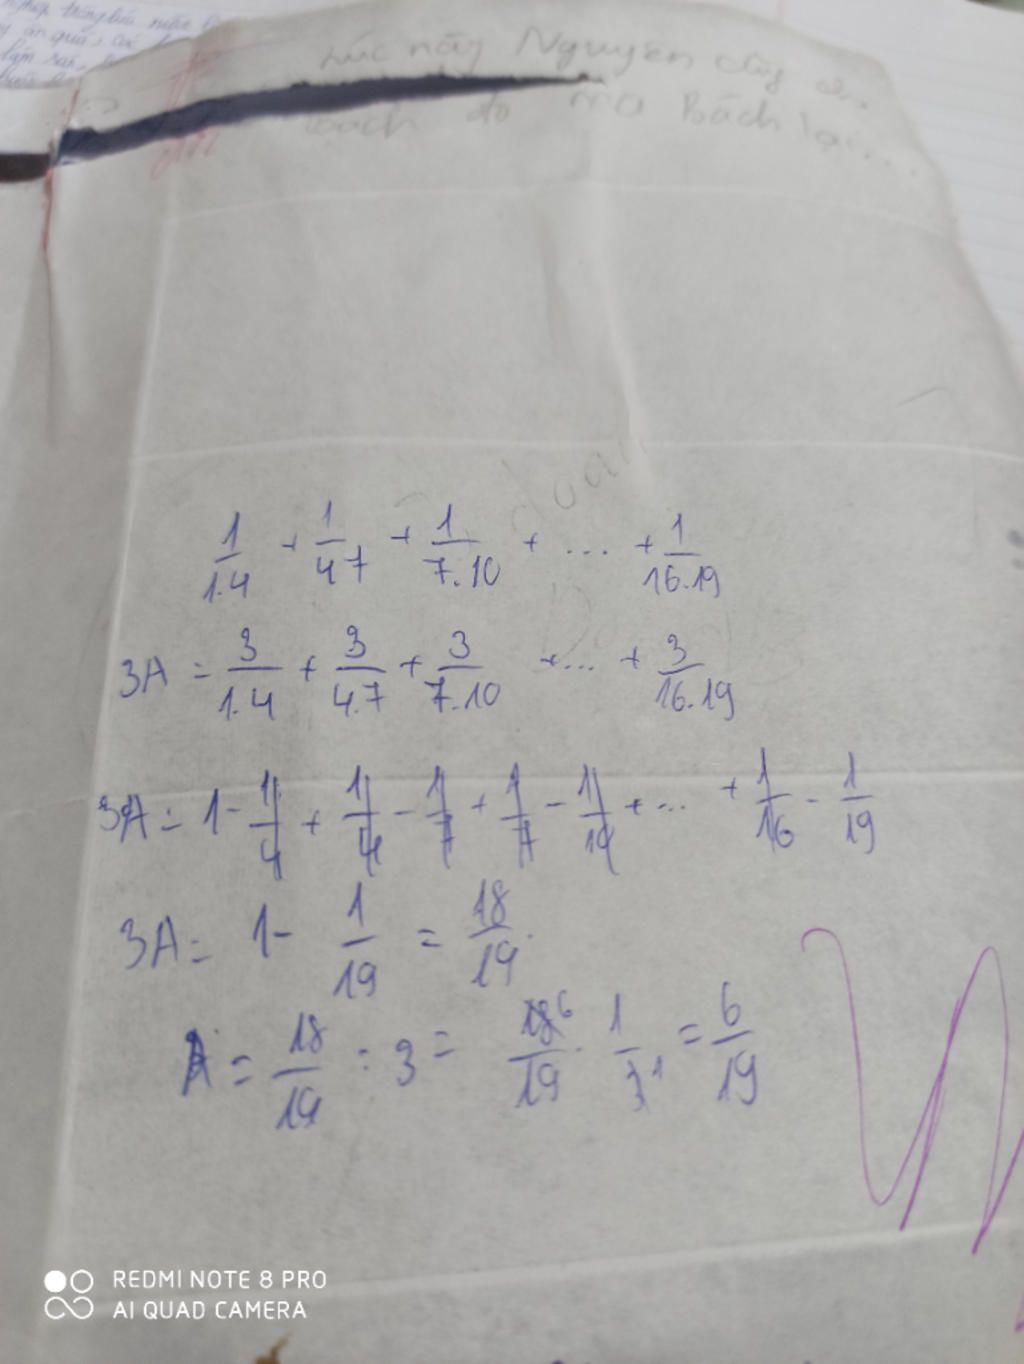 Lúc này Nguyên cũng
Bách do mà Bách lại...
1/1.4 + 1/4 7 + 1/7.10 + ... + 1/16.19
3A = 3/1.4 + 3/4.7 + 3/7.10 + ... + 3/16.19
3A = 1 - 1/4 + 1/4 - 1/7 + 1/7 - 1/10 + ... + 1/16 - 1/19
3A = 1 - 1/19 = 18/19.
A = 18/19 : 3 = 18 6/19 . 1/3 1 = 6/19
REDMI NOTE 8 PRO
AI QUAD CAMERA